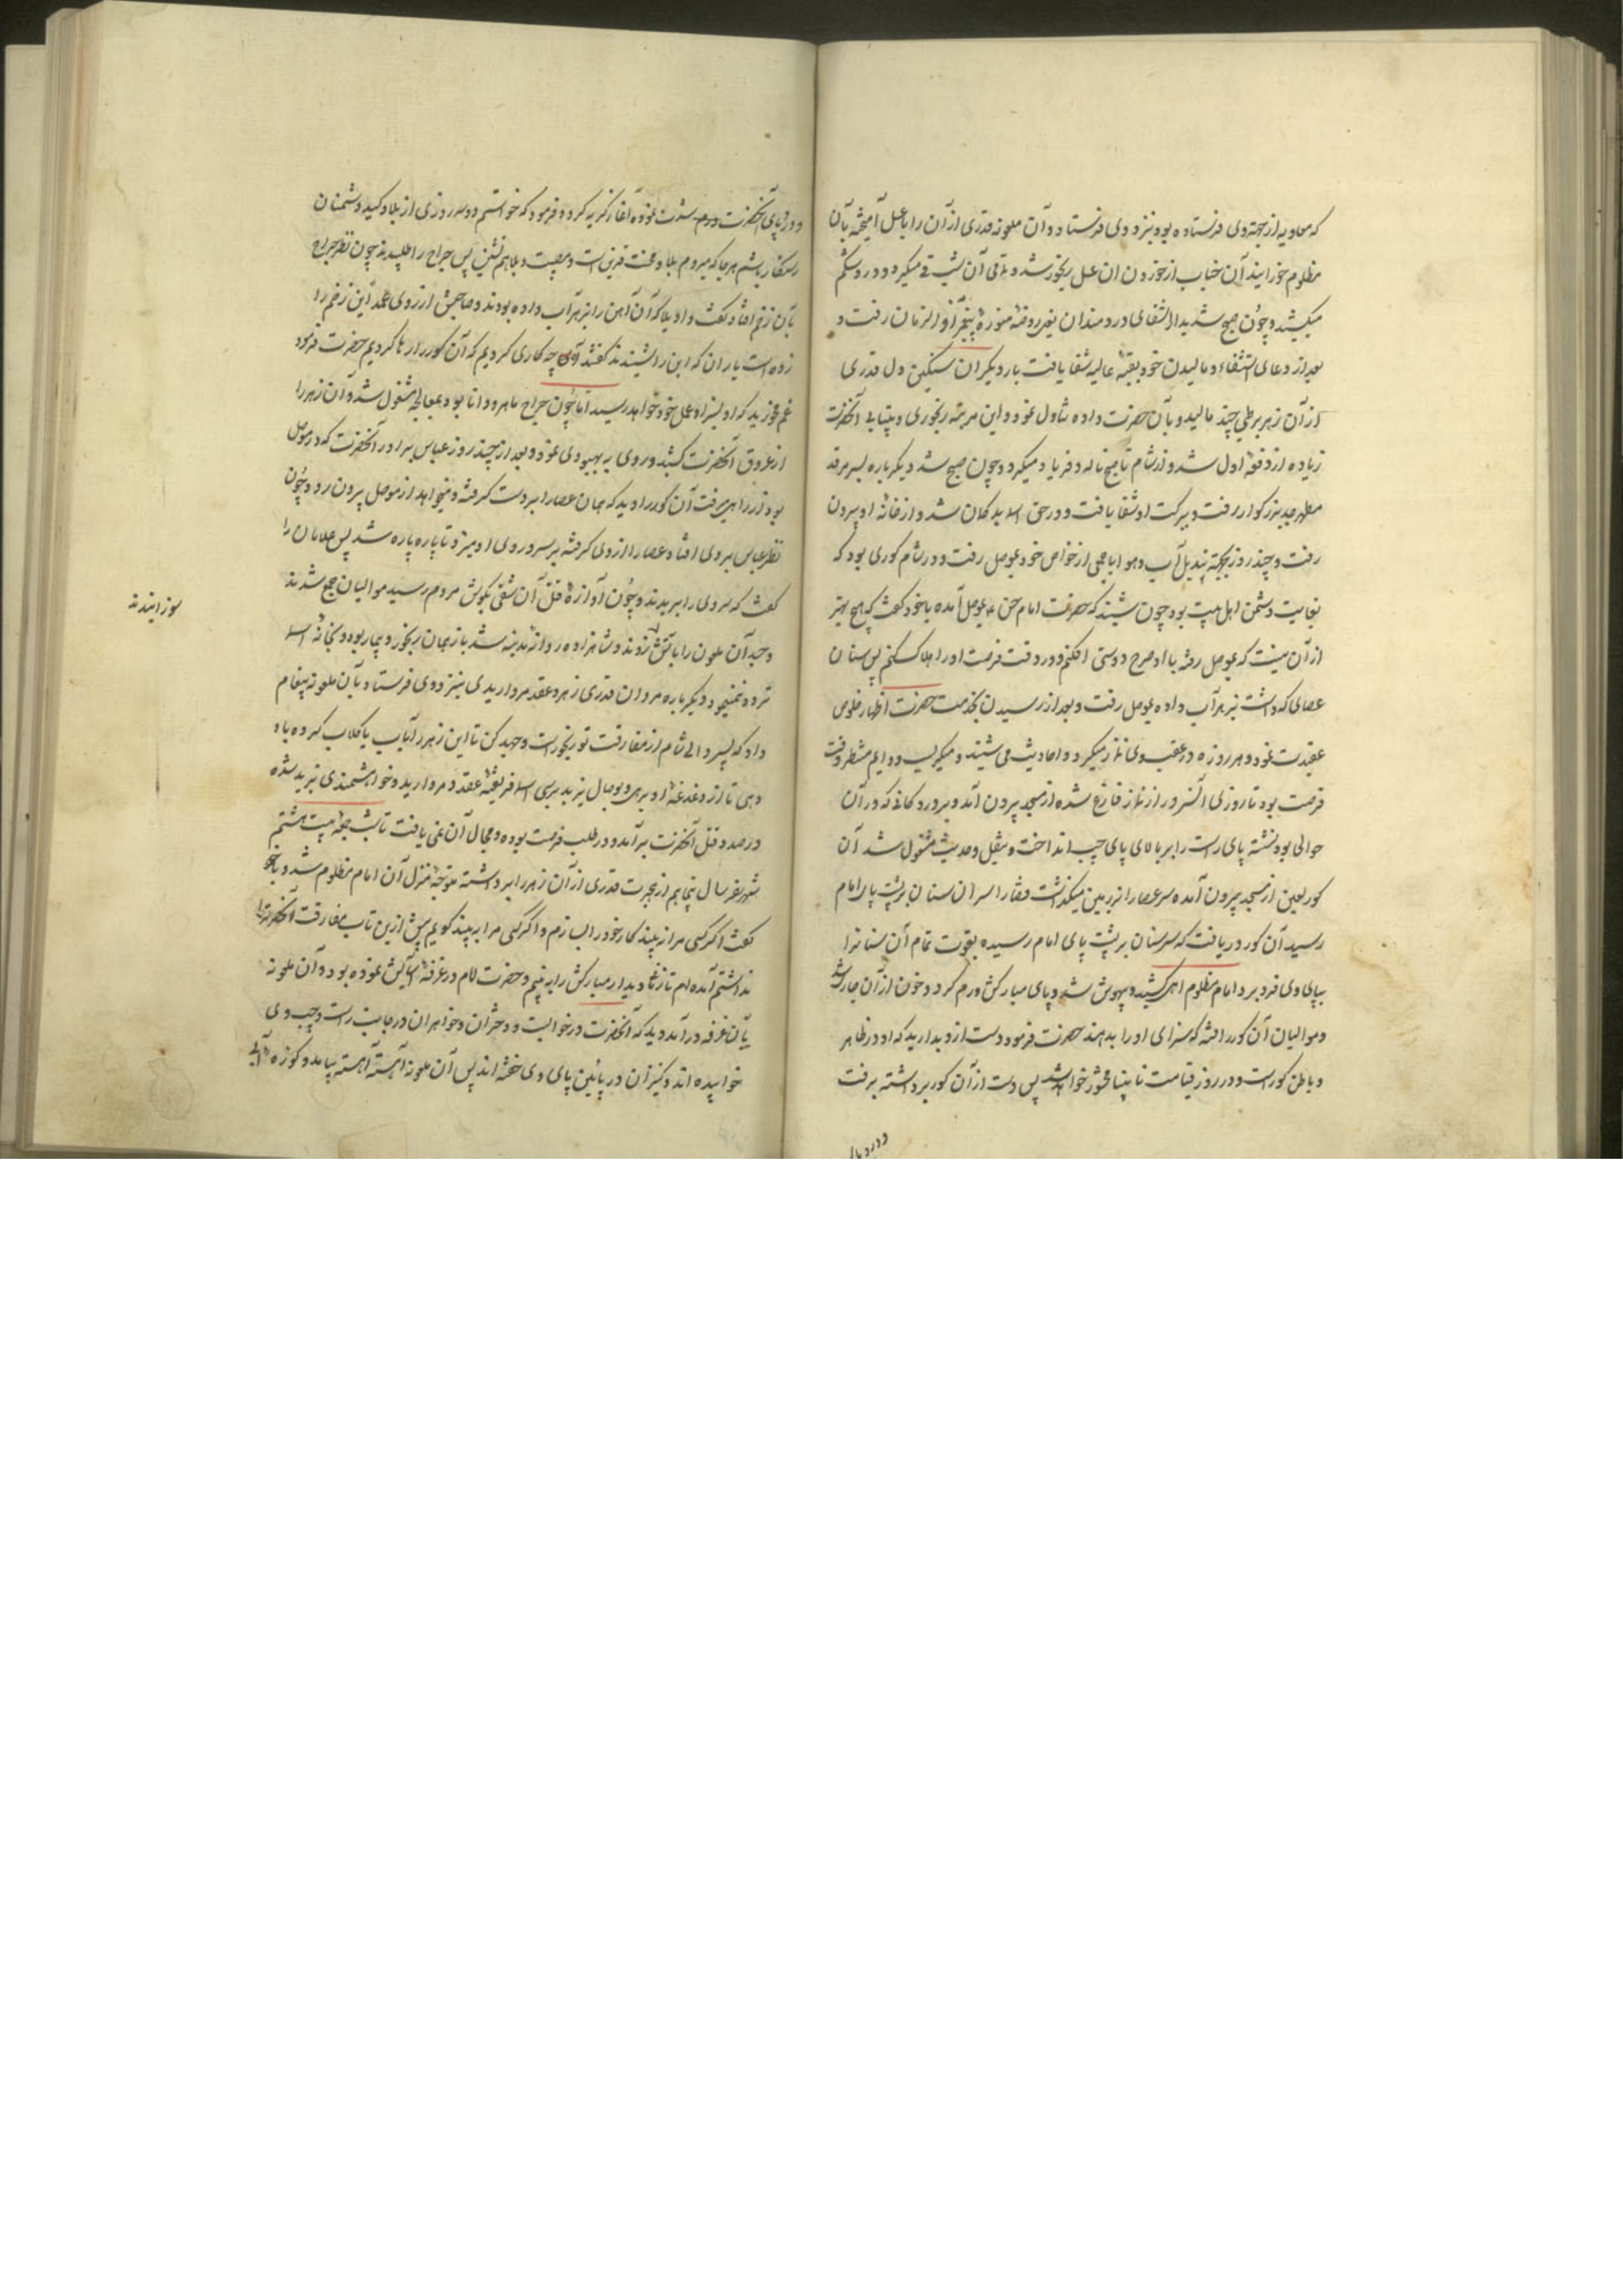 که معاویه از جهة وی فرستاده بود نیز دوی فرستاد و آن ملعونه قدری از آن را با عسل آمیخته بآن
مظلوم خورانید آن جناب از خوردن ان عسل رنجور شد و باقی آن شب قی میکرد و درد شکم
میکشید و چون صبح شد بدار الشفای دردمندان یعنی روضهٔ منورهٔ پیغمبر آخر الزمان رفت و
بعد از دعای استشفاء و مالیدن خود ببقعهٔ عالیه شفا یافت بار دیگر ان سنگین دل قدری
از آن زهر بر رطبی چند مالید و بآن حضرت داده تناول نمود و این مرتبه رنجوری و بیتابی آنحضرت
زیاده از دفعهٔ اول شد و از شام تا صبح ناله و فریاد میکرد و چون صبح شد دیگر باره بسر مرقد
مطهر جد بزرگوار رفت و ببرکت او شفا یافت و در حق اسما بد کمان شد و از خانهٔ او بیرون
رفت و چند روز بجهة تبدیل آب و هوا با جمعی از خواص خود بموصل رفت و در شام کوری بود که
بغایت دشمن اهل بیت بود چون شنید که حضرت امام حسن ع بموصل آمده با خود گفت که هیچ بهتر
از آن نیست که بموصل رفته با او طرح دوستی افکنم و در وقت فرصت او را هلاک کنم پس سنان
عصای که داشت بزهر آب داده بموصل رفت و بعد از رسیدن بخدمت حضرت اظهار خلوص
عقیدت نمود و هر روزه در عقب وی نماز میکرد و احادیث می شنید و میگریست و دایم منتظر وقت
فرصت بود تا روزی آنسرور از نماز فارغ شده از مسجد بیرون آمد و بر در دکانی که در آن
حوالی بود نشسته پای راست را بر بالای پای چپ انداخت و بنقل و حدیث مشغول شد آن
کور لعین از مسجد بیرون آمده سر عصا را بر زمین میگذاشت قضا را سر ان سنان بر پشت پای امام
رسید آن کور دریافت که سر سنان بر پشت پای امام رسیده بقوت تمام آن سنانرا
بپای وی فرو برد امام مظلوم اهی کشید و بیهوش شد و پای مبارکش ورم کرد و خون از آن جاری شد
و موالیان آن کور را گرفته که سزای او را بدهند حضرت فرمود دست از او بدارید که او در ظاهر
و باطن کور است و در روز قیامت نابینا محشور خواهد شد پس دست از آن کور برداشته برفت
و درد پای
و درد پای آنحضرت ورم شدت نموده آغاز گریه کرد و فرمود که خواستم دو سه روزی از بلا و کید دشمنان
رستگار باشم هر جا که میروم بلا و محنت قرین است و مصیبت و بلا همنشین پس جراح را طلبیدند چون نظر جراح
بآن زخم افتاد گفت واویلا که آن آهن را بزهر آب داده بودند و صاحبش از روی عمد این زخم را
زده است یاران که این را شنیدند گفتند آه چه کاری کردیم که آن کور را رها کردیم حضرت فرمود
غم مخورید که او بسزای عمل خود خواهد رسید اما چون جراح ماهر و دانا بود بمعالجه مشغول شد و آن زهر را
از عروق آنحضرت کشید و روی به بهبودی نمود و بعد از چند روز عباس برادر آنحضرت که در موصل
بود از راهی میرفت آن کور را دید که همان عصا را بر دست گرفته و میخواهد از موصل بیرون رود و چون
نظر عباس بر وی افتاد عصا را از وی گرفته بر سر و روی او میزد تا پاره پاره شد پس غلامان را
گفت که سر وی را بریدند و چون آوازهٔ قتل آن شقی بگوش مردم رسید موالیان جمع شدند
و جسد آن ملعون را بآتش زدند و شاهزاده روانهٔ مدینه شد باز همان رنجور و بیمار بوده و بخانهٔ اسما
تردد نمینمود دیگر باره مروان قدری زهر و عقد مرواریدی نیز دوی فرستاد و بآن ملعونه پیغام
داد که پسر والی شام از مفارقت تو رنجور است و جهد کن تا این زهر را بآب یا گلاب کرده باو
دهی تا از دغدغهٔ او برهی و بوصال یزید برسی اسما فریفتهٔ عقد مروارید و خواهشمندی یزید شده
در صدد قتل آنحضرت برآمد و در طلب فرصت بوده و مجال آن نمی یافت تا شب جمعه بیست هشتم
شهر صفر سال پنجاهم از هجرت قدری از آن زهر را برداشته متوجه منزل آن امام مظلوم شد و با خود
گفت اگر کسی مرا نبیند کار خود را بسازم و اگر کسی مرا ببیند گویم بیش ازین تاب مفارقت آنحضرترا
نداشتم آمده ام تا زمانی دیدار مبارکش را به بینم و حضرت امام در غرفهٔ آسایش نموده بود و آن ملعونه
بآن غرفه درآمد دید که آنحضرت در خوابست و دختران و خواهران در جانب راست و چپ وی
خوابیده اند و کنیزان در پائین پای وی خفته اند پس آن ملعونه آهسته آهسته بیامد و کوزهٔ آبی
سوزانیدند